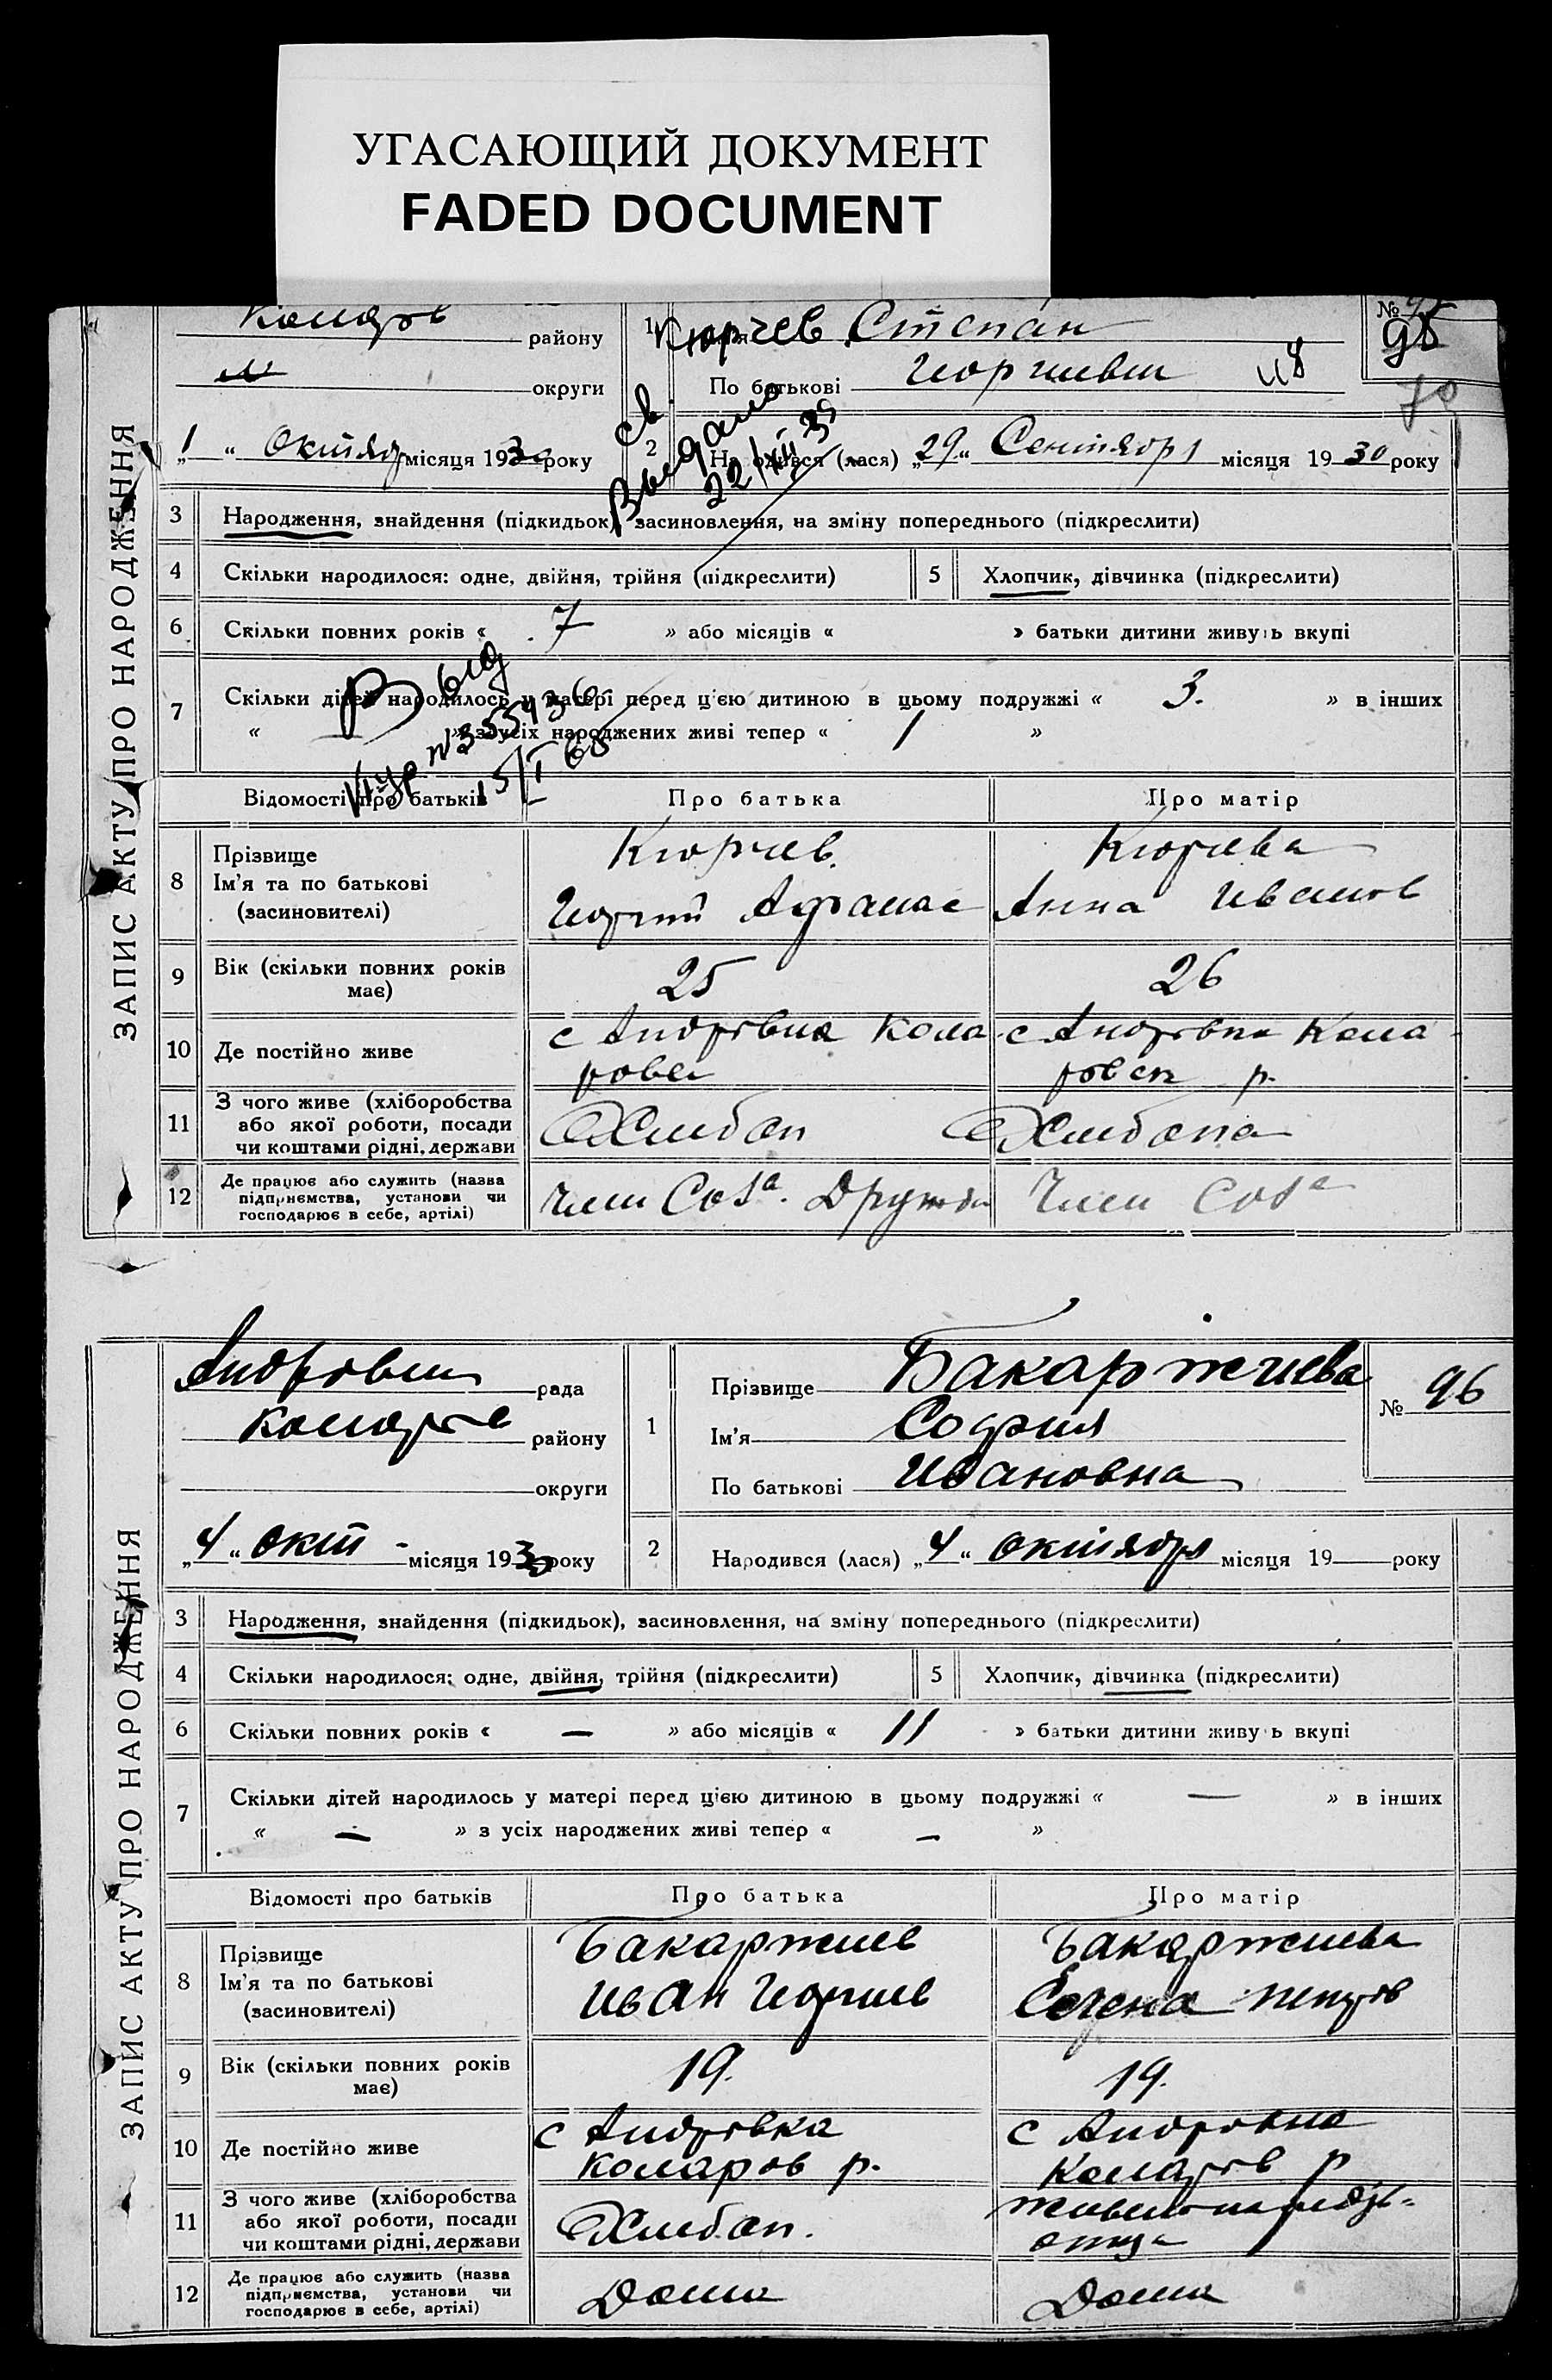 УГАСАЮЩИЙ ДОКУМЕНТ
FADED DOCUMENT
ЗАПИС АКТУ ПРО НАРОДЖЕННЯ
Коларов району
округи
„1“ Октяб місяця 1930 року
1 Кюрчев Степан
По батькові Георгиевич
№ 95
95
Выдано св
22/XII 39
2 Народився (лася) „29“ Сентября місяця 1930 року
3 Народження, знайдення (підкидьок), засиновлення, на зміну попереднього (підкреслити)
4 Скільки народилося: одне, двійня, трійня (підкреслити) 5 Хлопчик, дівчинка (підкреслити)
6 Скільки повних років « 7 » або місяців « » батьки дитини живуть вкупі
7 Скільки дітей народилось у матері перед цією дитиною в цьому подружжі « 3. » в інших
« — » з усіх народжених живі тепер « 1 »
Выд
15/I 60
Відомості про батьків Про батька Про матір
8 Прізвище Кюрчев Кюрчева
Ім'я та по батькові
(засновителі) Георгий Афанас Анна Иванов
9 Вік (скільки повних років має) 25 26
10 Де постійно живе с Андровка Кола с Андровка Кола
ров ровск р.
11 З чого живе (хліборобства
або якої роботи, посади Хлибоп Хлибопа
чи коштами рідні, держави
12 Де працює або служить (назва
підприємства, установи чи Член Соза. Дружба Член Соза
господарює в себе, артілі)
ЗАПИС АКТУ ПРО НАРОДЖЕННЯ
Андровки рада
Коларов району
округи
„4“ окт - місяця 1930 року
1 Прізвище Бакаржиева
Ім'я София
По батькові Ивановна
№ 96
2 Народився (лася) „4“ октября місяця 19 року
3 Народження, знайдення (підкидьок), засиновлення, на зміну попереднього (підкреслити)
4 Скільки народилося: одне, двійня, трійня (підкреслити) 5 Хлопчик, дівчинка (підкреслити)
6 Скільки повних років « — » або місяців « 11 » батьки дитини живуть вкупі
7 Скільки дітей народилось у матері перед цією дитиною в цьому подружжі « — » в інших
« — » з усіх народжених живі тепер « — »
Відомості про батьків Про батька Про матір
8 Прізвище Бакаржиев Бакаржиева
Ім'я та по батькові Иван Георгиев Елена Петров
(засиновителі)
9 Вік (скільки повних років має) 19. 19.
10 Де постійно живе с Андровка с Андровка
Коларов р. Коларов р
11 З чого живе (хліборобства
або якої роботи, посади Хлибоп. отца
чи коштами рідні, держави
12 Де працює або служить (назва
підприємства, установи чи Дома Дома
господарює в себе, артілі)